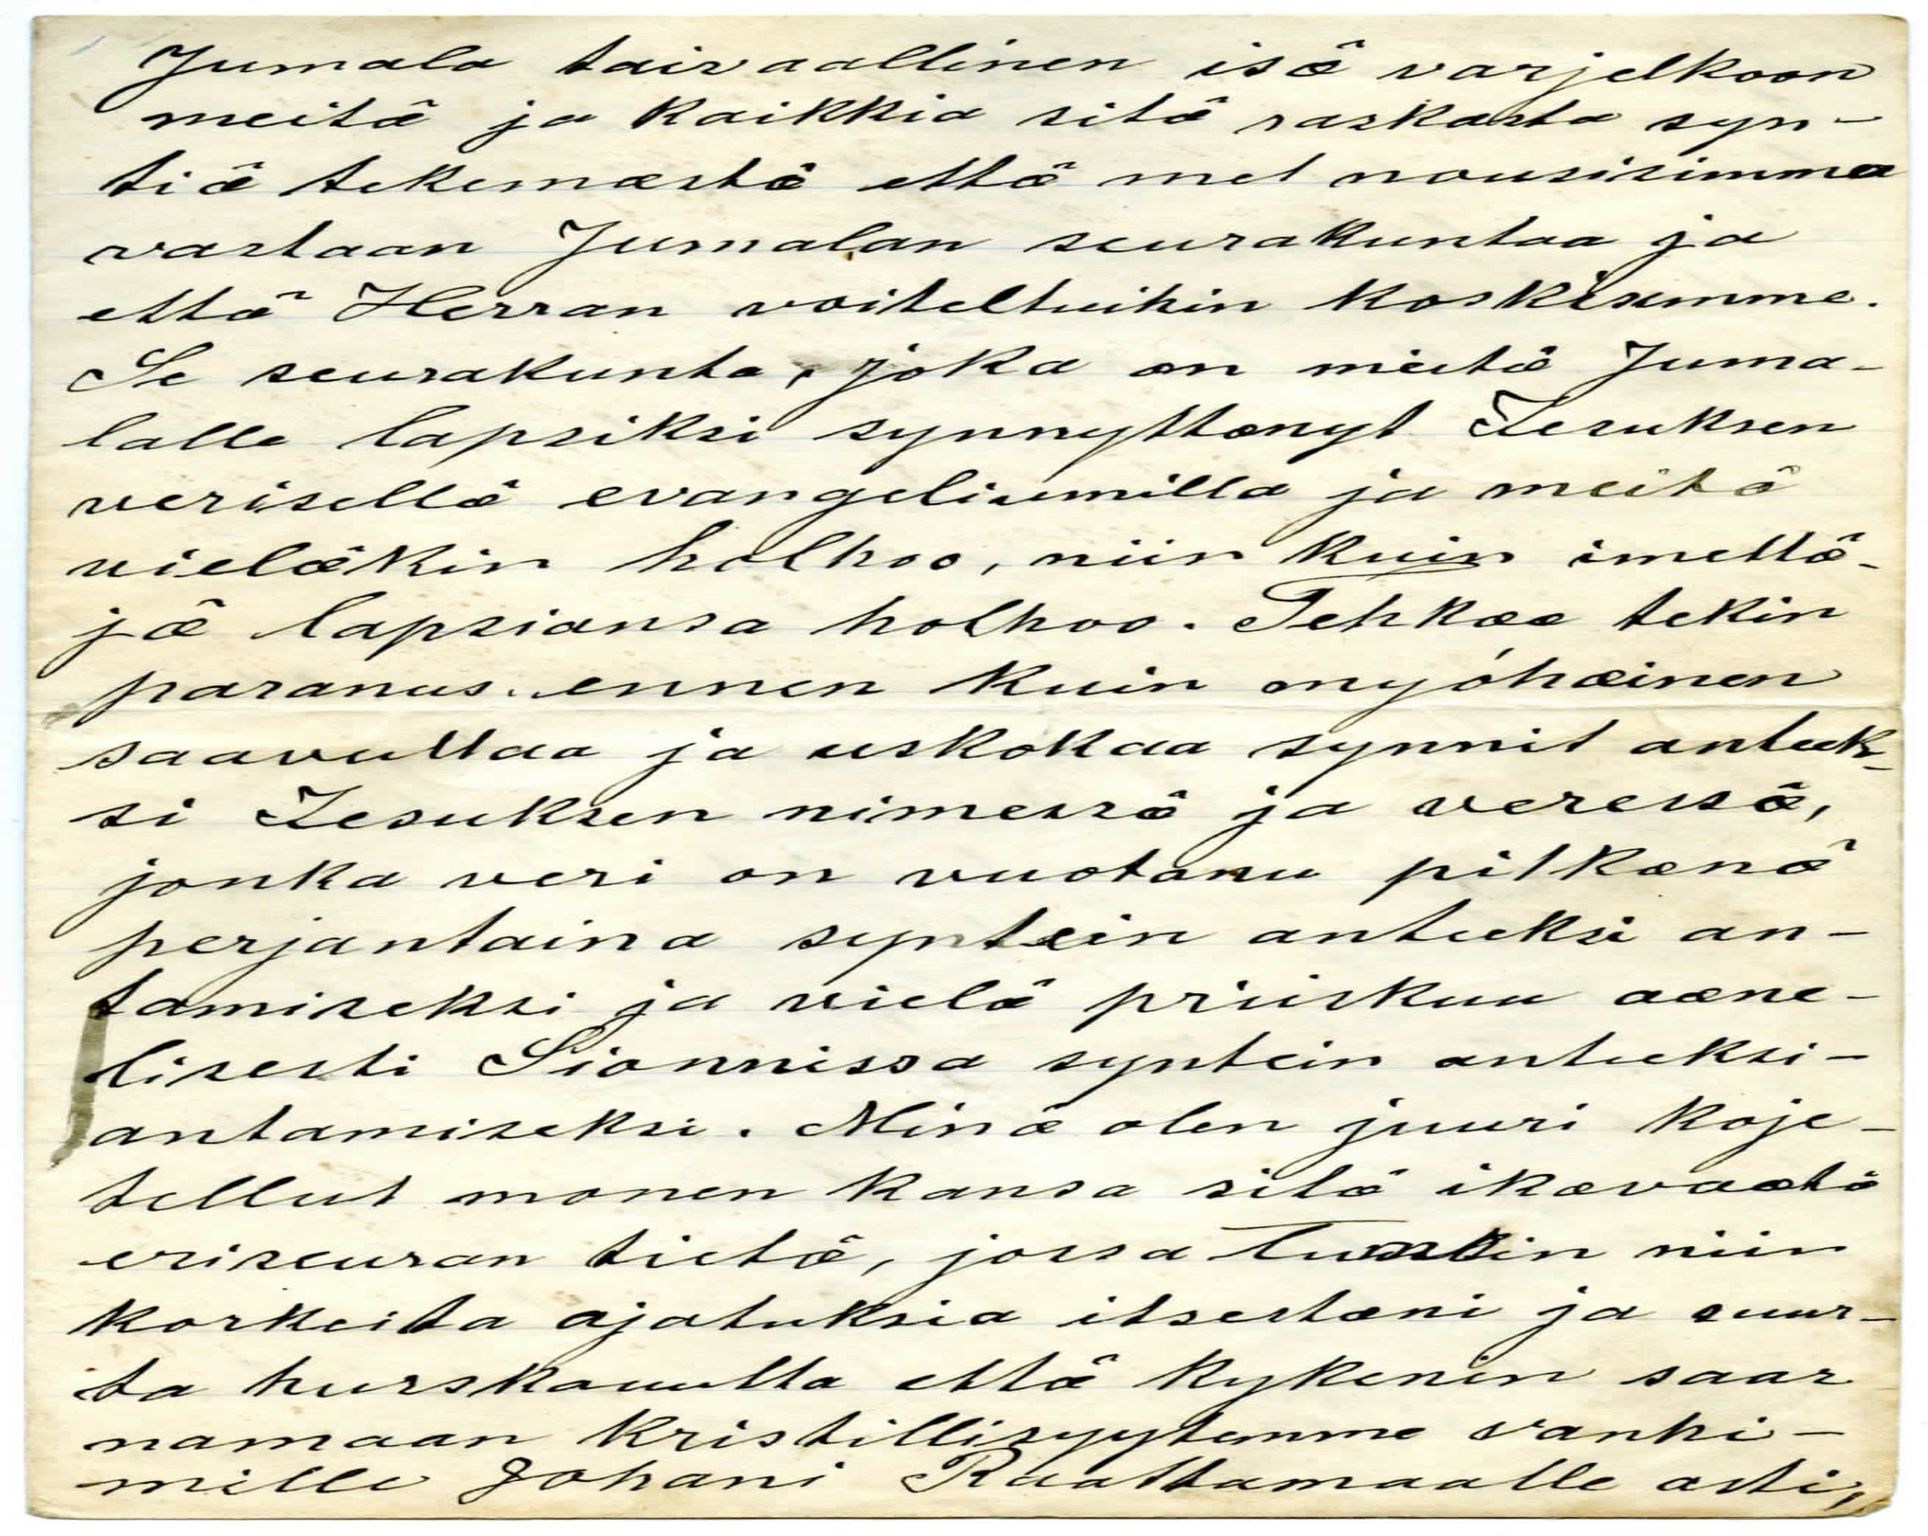 Jumala taivaallinen isä varjelkoon
meitä ja kaikkia sitä raskasta syn-
tiä tekemästä että met nousisimma
vastaan Jumalan seurakuntaa ja
että Herran voideltuihin koskisumme.
Se seurakunta, joka on meitä Juma-
lalle lapsiksi synnyttänyt Jesuksen
verisellä evangeliumilla ja meitä
vieläkin holhoo, niin kuin imettä-
jä lapsiansa holhoo. Tehkää tekin
paranus. ennen kuin myöhäinen
saavuttaa ja uskokaa synnit anteek-
si Jesuksen nimessä ja veressä,
jonka veri on vuotanu pitkänä
perjantaina syntein anteeksi an-
tamiseksi ja vielä priiskuu ääne-
lisesti Sionnissa syntein anteeksi-
antamiseksi. Minä olen juuri koje-
tellut monen kansa sitä ikäväätä
eriseuran tietä, jossa tunsin niin
korkeita ajatuksia itsestäni ja suur-
ta hurskauutta että kykenin saar
namaan kristillisyytemme vanhi-
mille Johani Raattamaalle asti,